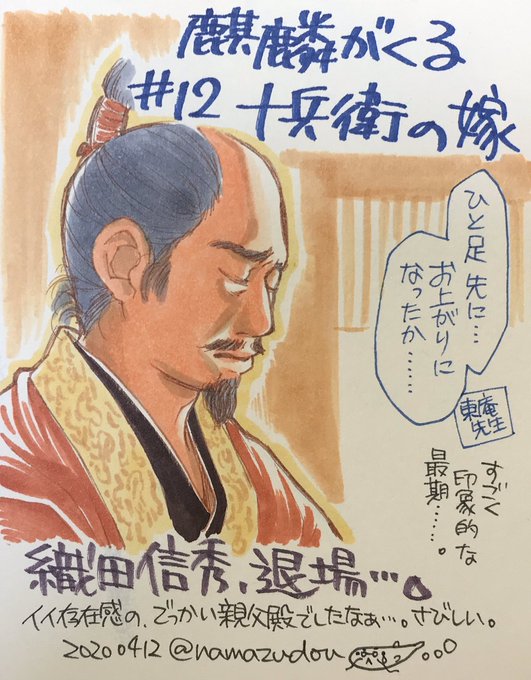 麒麟がくる
#12 十兵衛の嫁
ひと足 先に…
お上がりに
なったか……
東庵
先生
すごく
印象的な
最期……。
織田信秀、退場…。
イイ存在感の、でっかい親父殿でしたなぁ…。さびしい。
20200412 @namazudou